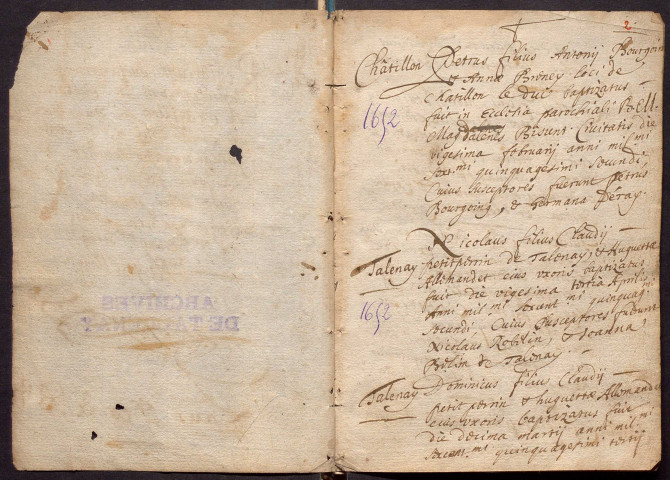 2
Châtillon Petrus filius Antonij Bourgoin
et Annæ Broney loci de
Chatillon le duc baptizatus
fuit in Ecclesia parochiali
Magdalenes Bisunt. Civitatis die
vigesima februarij anni mil.mi
sexent.mi quinquagesimi secundi,
Cuius susceptores fuerunt Petrus
Bourgoing, & Germana Peray.
1652
Nicolaus filius Claudij
Talenay petitperrin de Talenay, et Huguettæ
Allemandet eius uxoris baptizatus
fuit die vigesima tertia Aprilis
Anni mil mi sexcent mi quinquag
secundi. Cuius susceptores fuerunt
1652
Nicolaus Roblin, & Joanna
Belin de Talenay.
Talenay Dominicus filius Claudij
petit perrin & huguettæ Allemandet
eius uxoris baptizatus fuit
die decima martij anni mil.mi
sexcent.mi quinquagesimi tertij
ARCHIVES